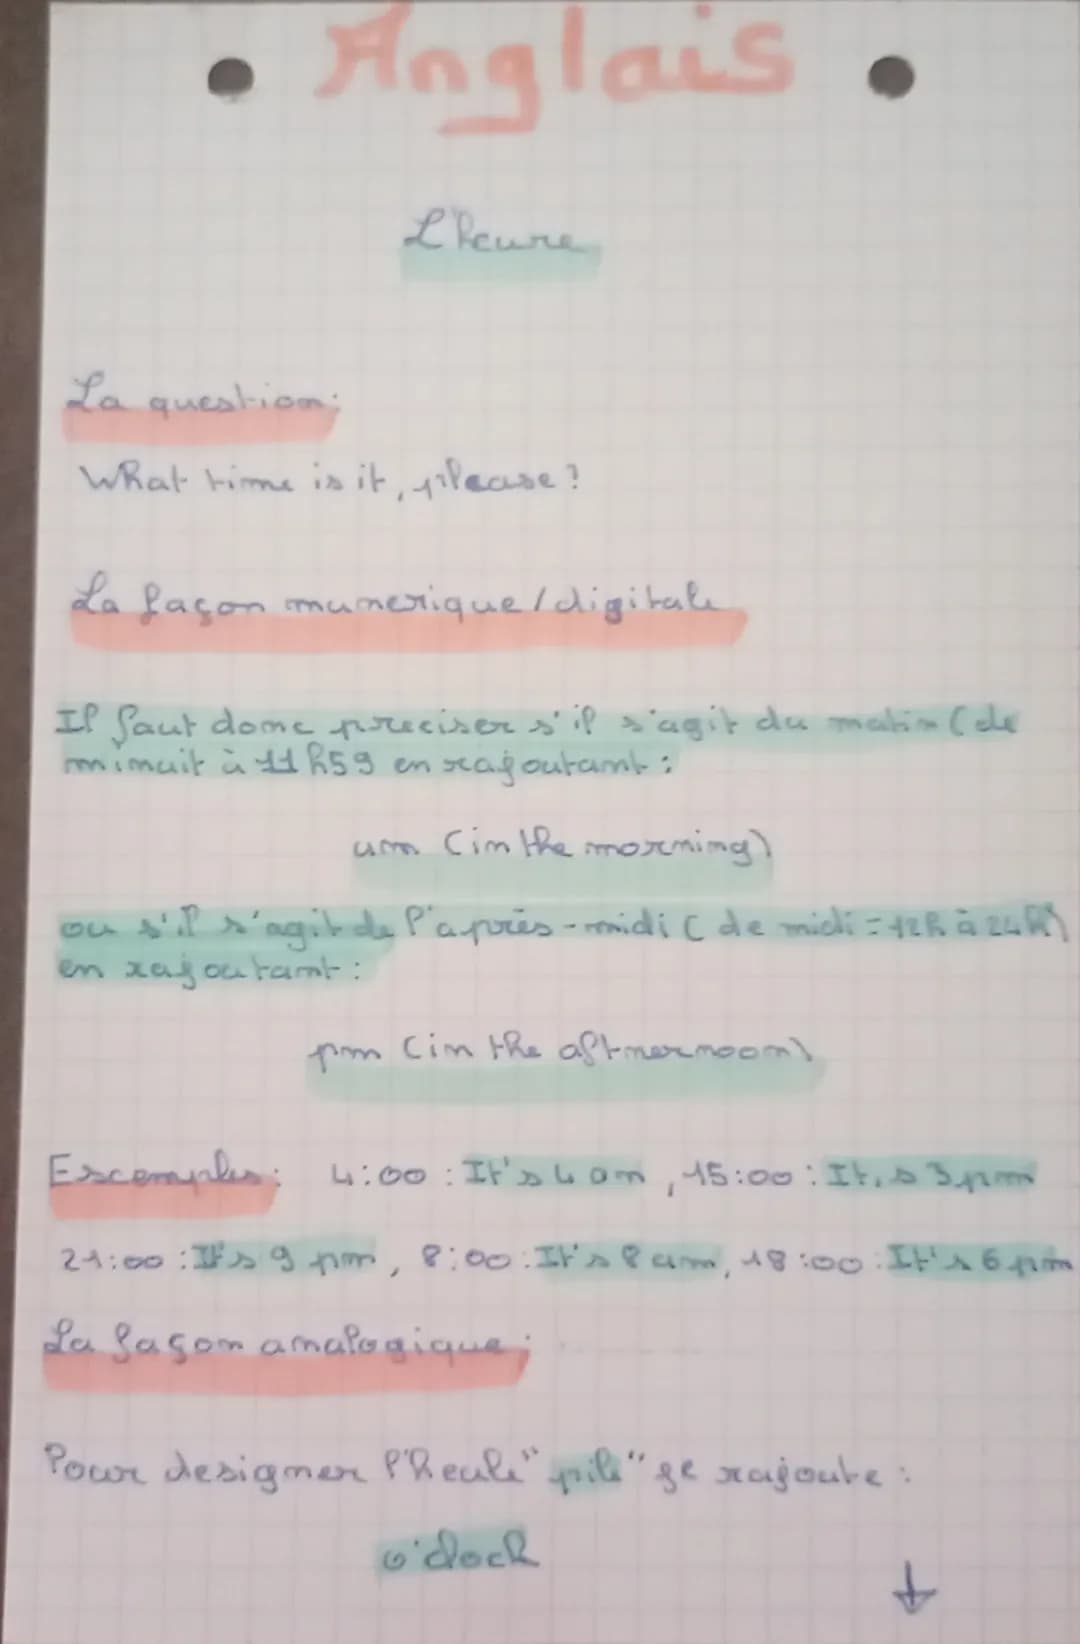 Anglais
L'heure
La question:
What time is it, please?
La façon numerique/digitale
Il faut donc preciser s'il s'agit du matin (de
minuit à 11h59 en rajoutant:
am (in the morning)
ou s'il s'agit de l'après-midi (de midi=12h à 24h)
en rajoutant:
pm (in the aftnernoon)
Exemples: 4:00: It's 4 am, 15:00: It,s 3 pm
21:00: It's 9 pm, 8:00: It's 8 am, 18:00: It's 6 pm
La façon analogique:
Pour designer l'heule "pile" je rajoute:
o'clock